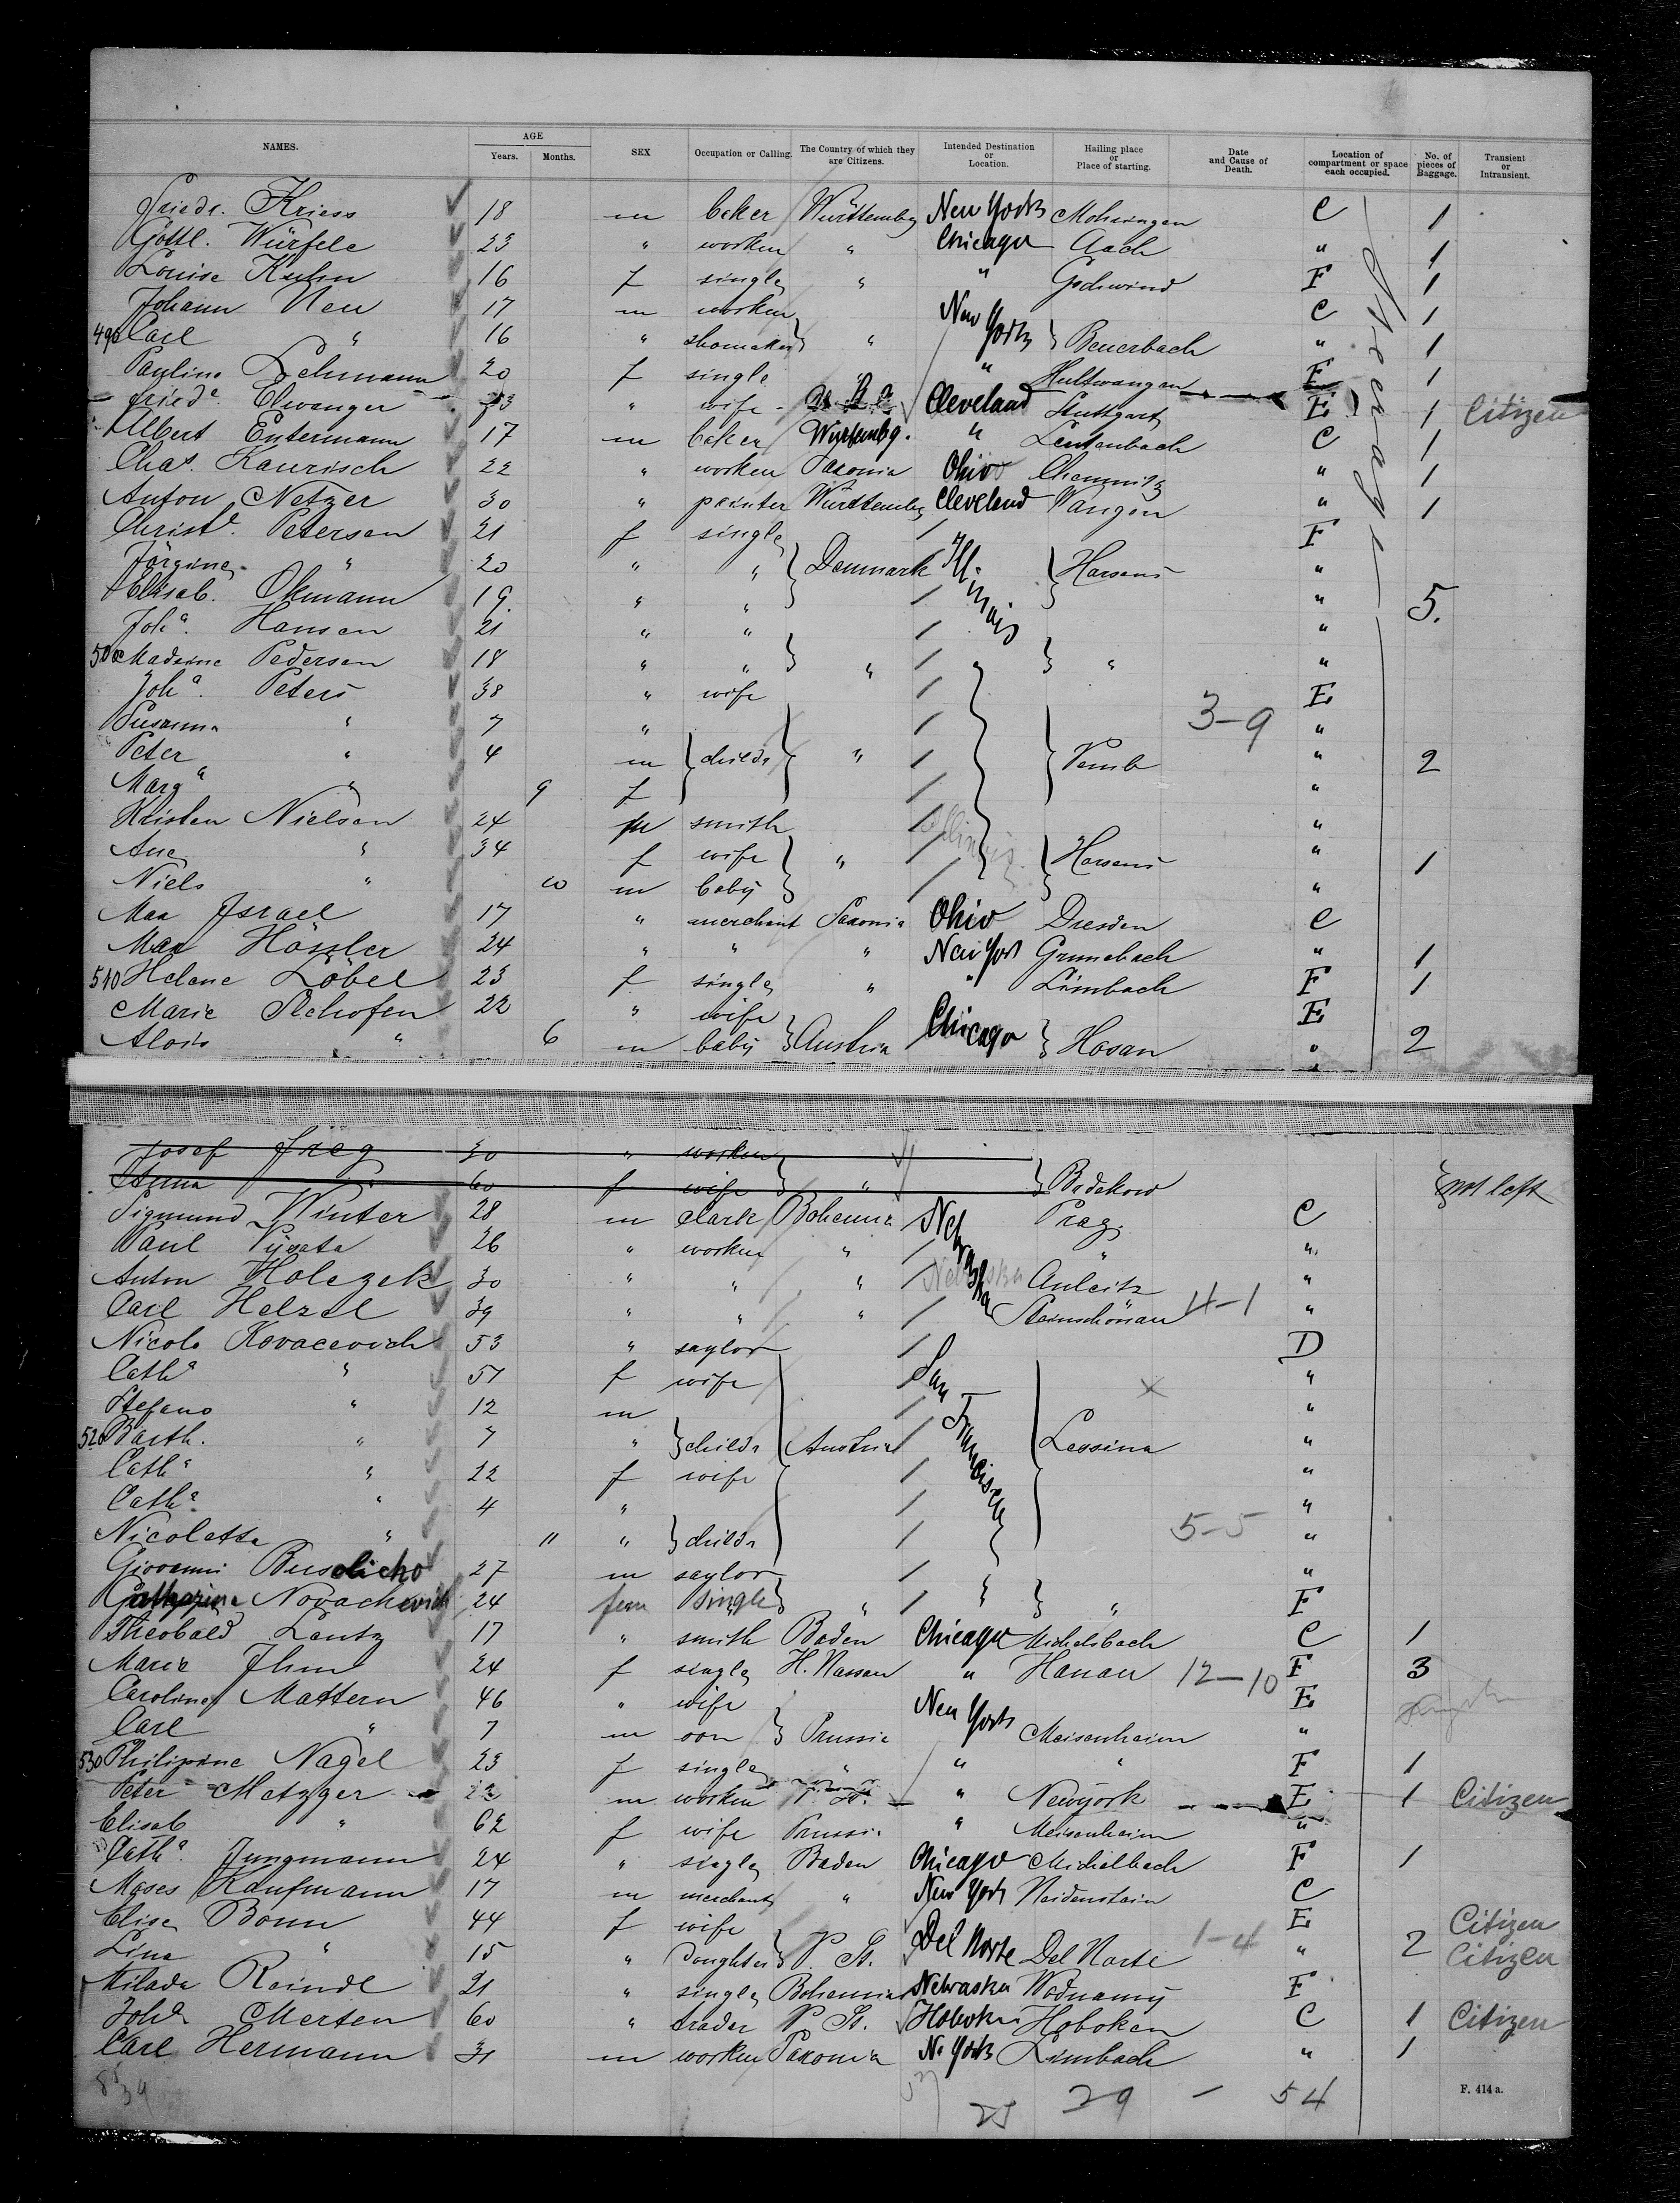 NAMES. AGE Years. Months. SEX Occupation or Calling. The Country of which they are Citizens. Intended Destination or Location. Hailing place or Place of starting. Date and Cause of Death. Location of compartment or space each occupied. No. of pieces of Baggage. Transient or Intransient.
Friedr. Kriess 18 m beker Württembg New York Mohringen C 1
Gottl. Würfele 23 " worker " Chicago Aach " 1
Louise Kuhn 16 f single " " Gschwind F 1
Johann Neu 17 m worker New York C 1
490 Carl " 16 " shomaker " Beuerbach " 1
Pauline Lehmann 20 f single " " Hultwangen F 1
Friedr. Elwanger 33 " wife Cleveland Stuttgart E 1 Citizen
Albert Entermann 17 m beker Württembg. " Leutenbach C 1
Chas. Kaurisch 22 " worker Saxonia Ohio Chemnitz " 1
Anton Netzer 30 " peinter Württembg Cleveland Wangen " 1
Christe. Petersen 21 f single F
Jörgine " 20 " " Denmark Illinois Horsens "
Elisab. Okmann 19. " " " 5.
Joha. Hansen 21 " " "
500 Madsine Pedersen 18 " " " " " "
Joha. Peters 38 " wife E
Susanna " 7 " 3-9 "
Peter " 4 m childr " Vemb " 2
Marga " 9 f "
Kristen Nielsen 24 m smith Illinois "
Ane " 34 f wife " Horsens " 1
Niels " 10 m baby "
Max Israel 17 " merchant Saxonia Ohio Dresden C
Max Hössler 24 " " " New York Grunebach " 1
510 Helene Löbel 23 f single " " Limbach F 1
Marie Stehofen 22 " wife E
Alois " 6 m baby Austria Chicago Hosan " 2
Steerage
Josef Jreg 30 " worker
Anna " 60 f wife " Bodekow not left
Sigmund Winter 28 m clark Bohemia Nebraska Prag C
Paul Vysata 26 " worker " " "
Anton Holezek 30 " " " Nebraska Auleitz "
Carl Helzel 39 " " " Steinschönau 4-1 "
Nicolo Kovacevich 53 " saylor D
Catha " 51 f wife San Francisco "
Stefano " 12 m "
520 Barth. " 7 " childr Austria Lessina "
Catha " 22 f wife "
Catha " 4 " "
Nicoletta " 11 " childr 5-5 "
Giovanni Busolicho 27 m saylor "
Catharina Novachevich 24 fem single " " " F
Theobald Lentz 17 " smith Baden Chicago Michelbach C 1
Marie Ihm 24 f single H. Nassau " Hanau 12-10 F 3
Caroline Mattern 46 " wife New York E
Carl " 7 m son Prussia Meisenheim "
530 Philipine Nagel 23 f single " " " F 1
Peter Metzger 22 m worker " Newyork E 1 Citizen
Elisab " 62 f wife Prussia " Meisenheim "
Catha. Jungmann 24 " single Baden Chicago Michelbach F 1
Moses Kaufmann 17 m merchant " New York Neidenstein C
Elise Bonn 44 f wife 1-4 E Citizen
Lina " 15 " Doughter V. St. Del Norte Del Norte " 2 Citizen
Milada Reindl 21 " single Bohemia Nebraska Wodnamy F
Johs Merten 60 " trader V. St. Hoboken Hoboken C 1 Citizen
Carl Hermann 31 m worker Saxonia N. York Limbach " 1
25 29 - 54 F. 414 a.